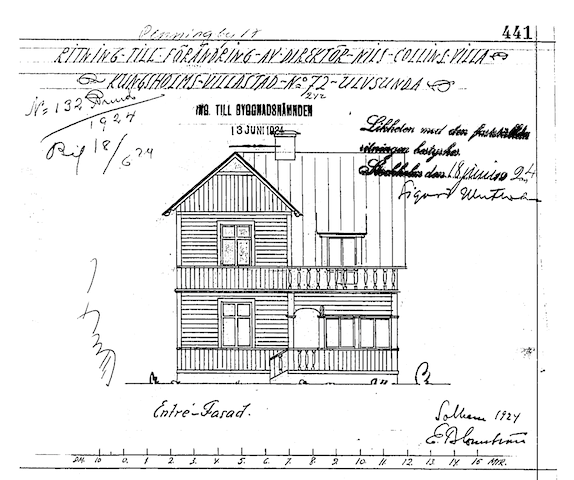 Penningby 14
441
RITNING-TILL-FÖRÄNDRING-AV-DIREKTÖR-NILS-COLLINS-VILLA
KUNGSHOLMS-VILLASTAD-No 72-ULVSUNDA
No 132
1924
18/6 24
ING. TILL BYGGNADSNÄMNDEN
13 JUNI 1924
Likheten med den fastställda
ritningen bestyrkes.
Stockholm den 18 juni 1924
Sigurd
Entré-Fasad.
Solhem 1924
E. Blomström
DM. 10 0. 1 2. 3. 4. 5. 6. 7. 8. 9. 10. 11. 12. 13. 14. 15 MTR.